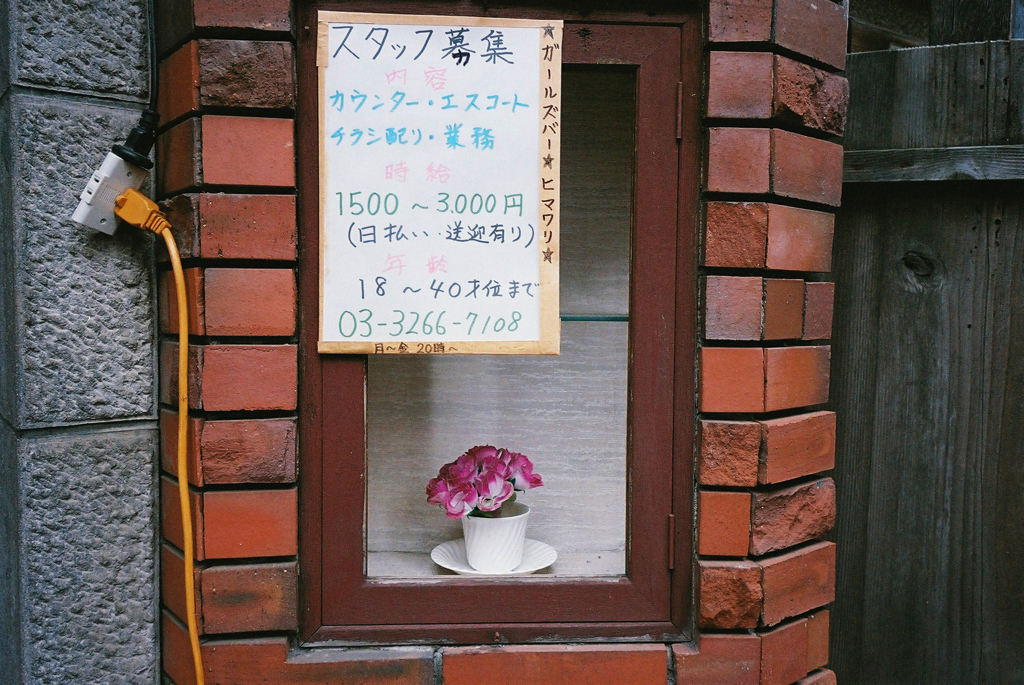 スタッフ募集
内容
カウンター・エスコート
チラシ配り・業務
時給
1500～3.000円
(日払い・送迎有り)
年齢
18～40才位まで
03-3266-7108
月～金 20時～
★ガールズバー★ヒマワリ★